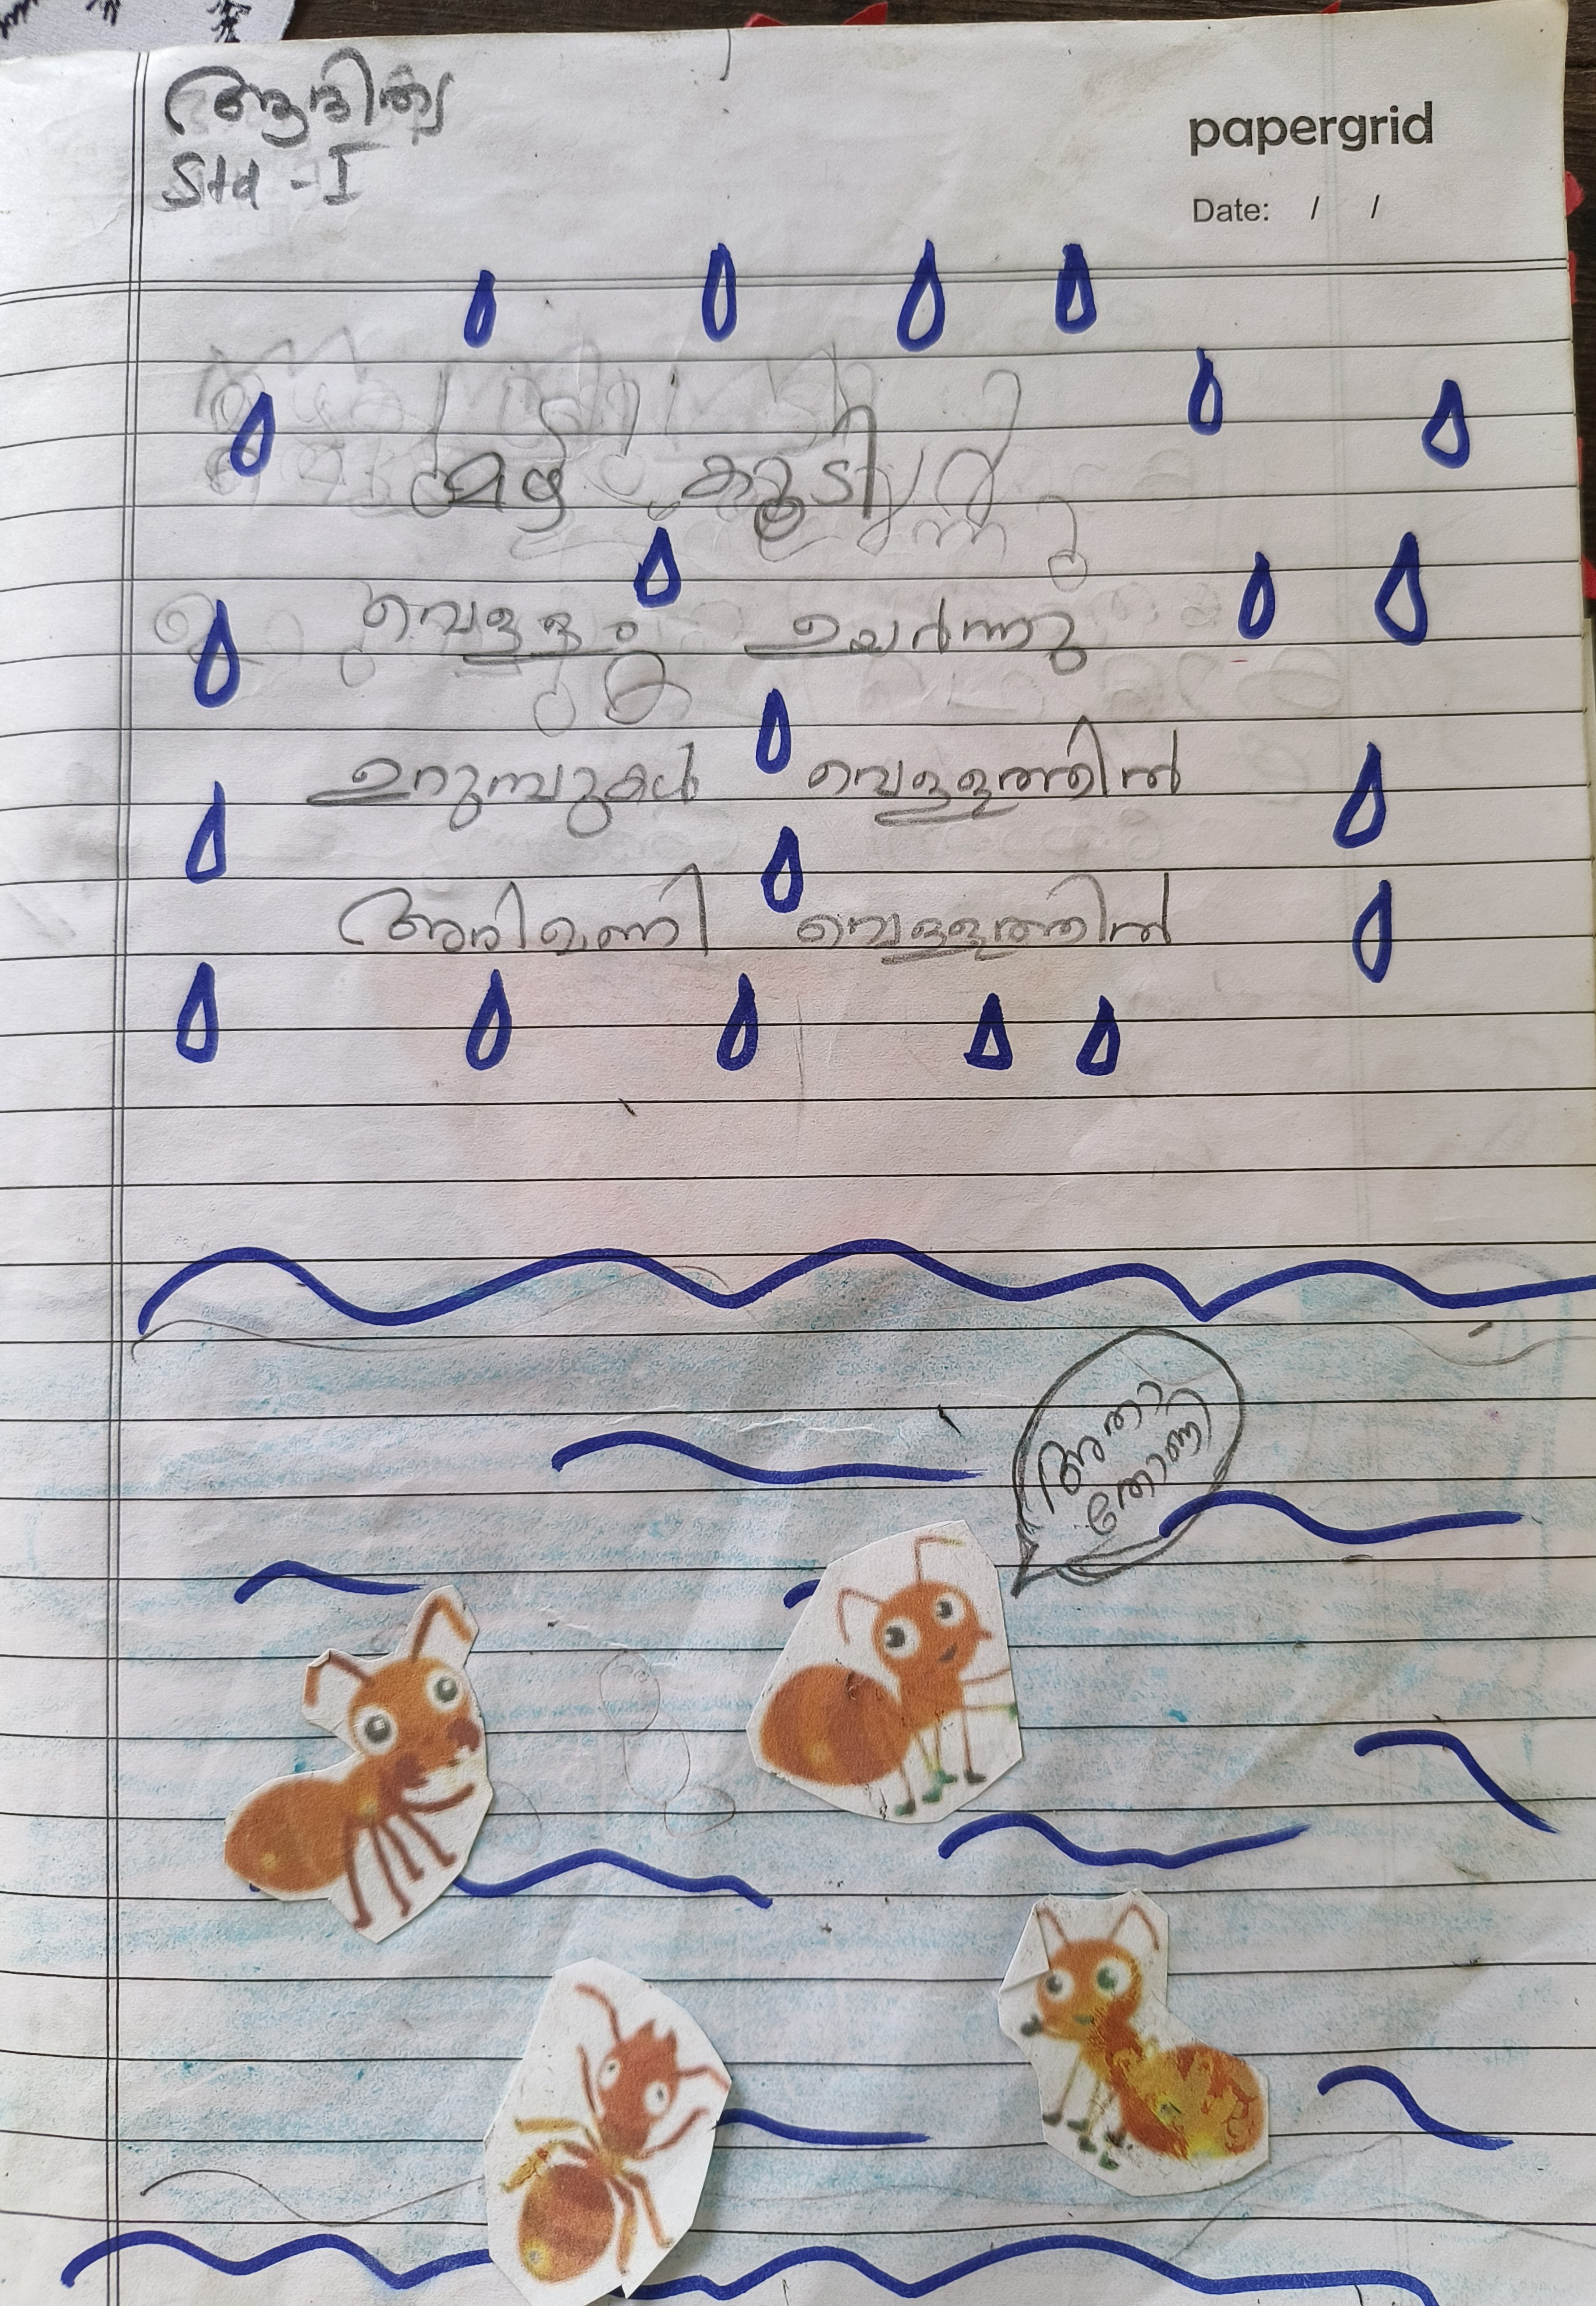 ആദിത്യ
Std - I
papergrid
Date: / /
മഴ കൂടി
വെള്ളം ഉയർന്നു
ഉറുമ്പുകൾ വെള്ളത്തിൽ
അരിമണി വെള്ളത്തിൽ
അതാ
തോണി